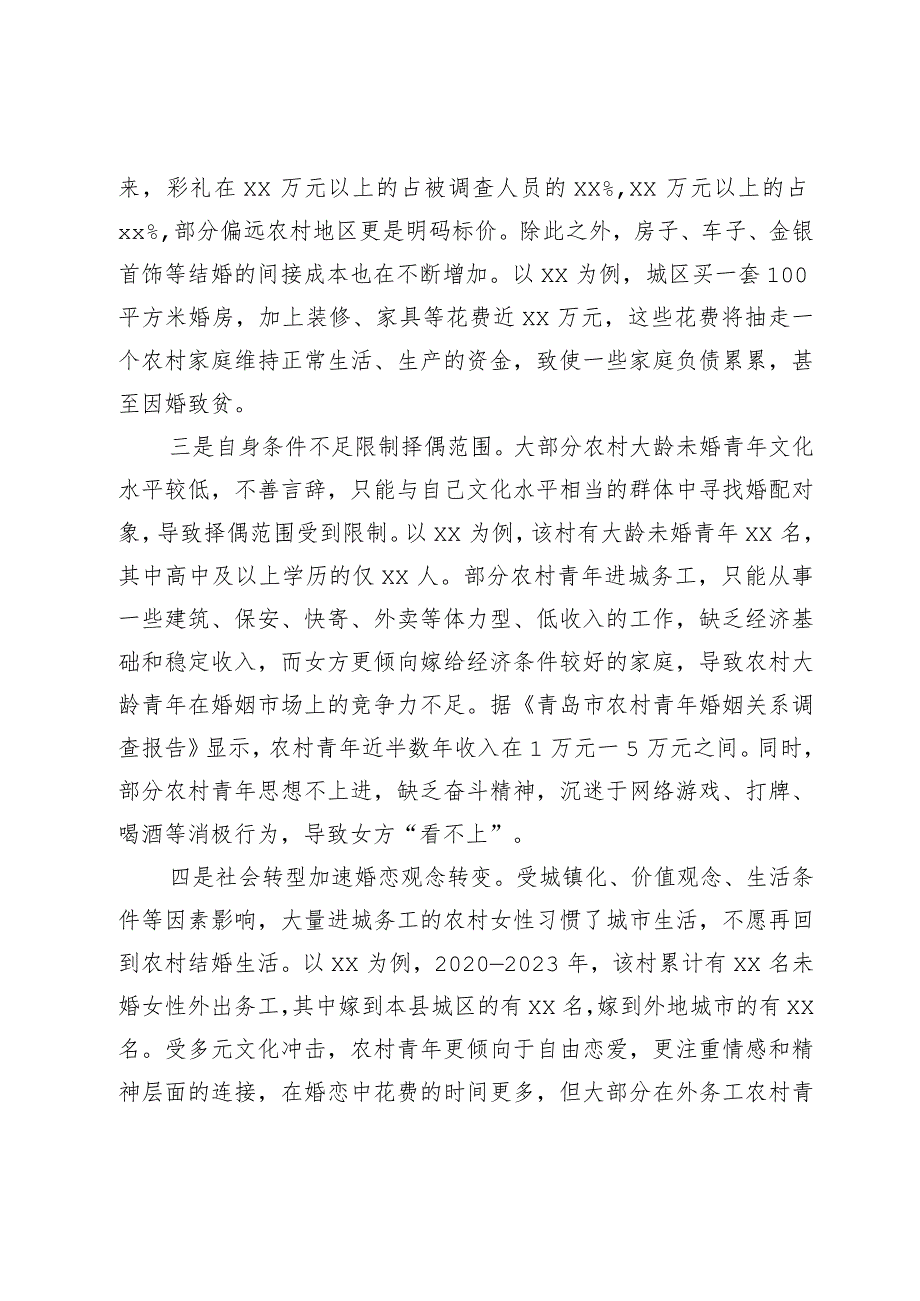 来，彩礼在 XX 万元以上的占被调查人员的 XX%,XX 万元以上的占
xx%,部分偏远农村地区更是明码标价。除此之外，房子、车子、金银
首饰等结婚的间接成本也在不断增加。以 XX 为例，城区买一套 100
平方米婚房，加上装修、家具等花费近 XX 万元，这些花费将抽走一
个农村家庭维持正常生活、生产的资金，致使一些家庭负债累累，甚
至因婚致贫。
三是自身条件不足限制择偶范围。大部分农村大龄未婚青年文化
水平较低，不善言辞，只能与自己文化水平相当的群体中寻找婚配对
象，导致择偶范围受到限制。以 XX 为例，该村有大龄未婚青年 XX 名，
其中高中及以上学历的仅 XX 人。部分农村青年进城务工，只能从事
一些建筑、保安、快寄、外卖等体力型、低收入的工作，缺乏经济基
础和稳定收入，而女方更倾向嫁给经济条件较好的家庭，导致农村大
龄青年在婚姻市场上的竞争力不足。据《青岛市农村青年婚姻关系调
查报告》显示，农村青年近半数年收入在 1 万元一 5 万元之间。同时，
部分农村青年思想不上进，缺乏奋斗精神，沉迷于网络游戏、打牌、
喝酒等消极行为，导致女方“看不上”。
四是社会转型加速婚恋观念转变。受城镇化、价值观念、生活条
件等因素影响，大量进城务工的农村女性习惯了城市生活，不愿再回
到农村结婚生活。以 XX 为例，2020—2023 年，该村累计有 XX 名未
婚女性外出务工，其中嫁到本县城区的有 XX 名，嫁到外地城市的有 XX
名。受多元文化冲击，农村青年更倾向于自由恋爱，更注重情感和精
神层面的连接，在婚恋中花费的时间更多，但大部分在外务工农村青